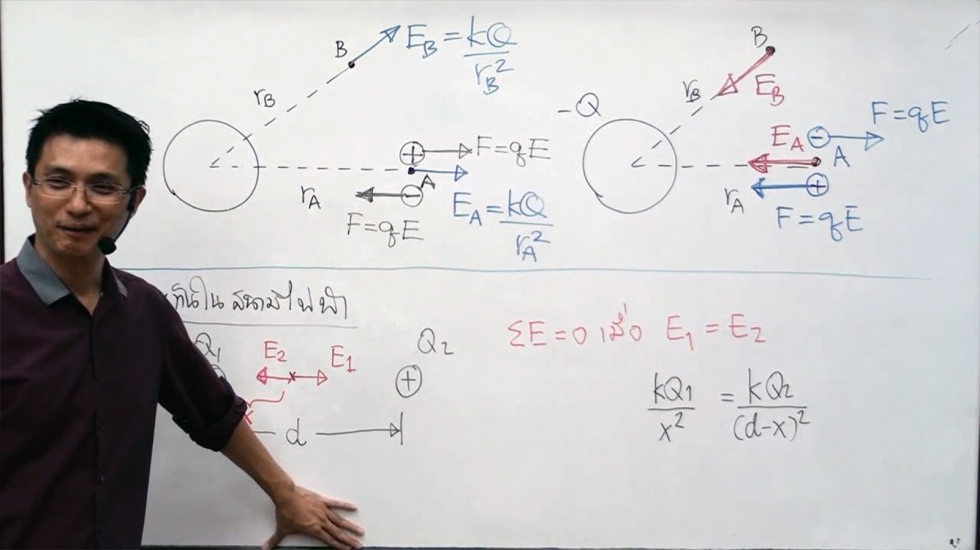 B
E_B = kQ/r_B²
r_B
⊕ → F = qE
A
r_A
⊖
F = qE
E_A = kQ/r_A²
-Q
B
r_B
E_B
F = qE
E_A
⊖
A
r_A
⊕
F = qE
ในสนามไฟฟ้า
Q₁
E₂
E₁
Q₂
⊕
x
d
ΣE = 0 เมื่อ E₁ = E₂
kQ₁/x² = kQ₂/(d-x)²